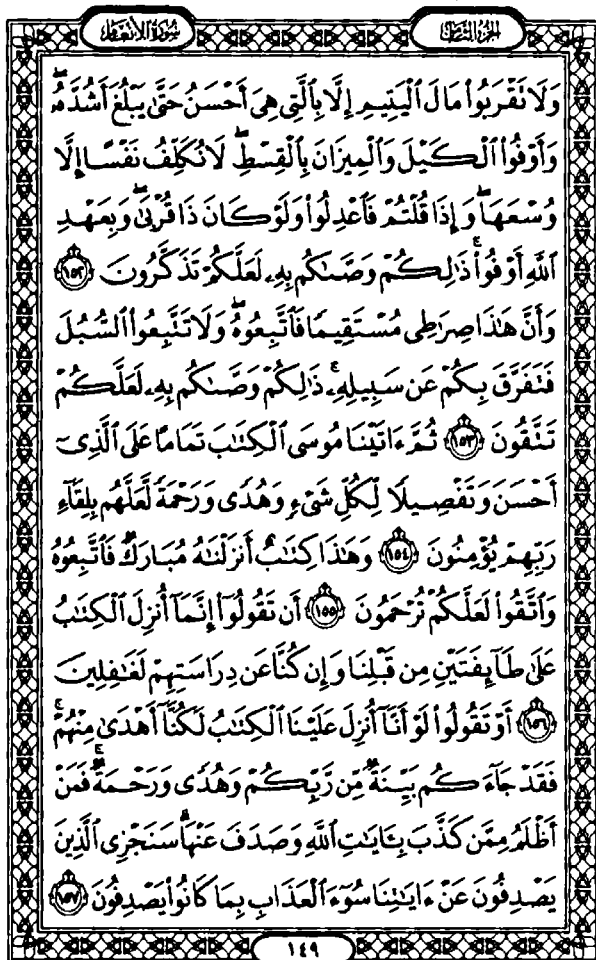 سُورَةُ الأَنْعَام الجُزْءُ الثَّامِن
وَلَا تَقْرَبُوا۟ مَالَ ٱلْيَتِيمِ إِلَّا بِٱلَّتِى هِىَ أَحْسَنُ حَتَّىٰ يَبْلُغَ أَشُدَّهُۥۖ
وَأَوْفُوا۟ ٱلْكَيْلَ وَٱلْمِيزَانَ بِٱلْقِسْطِۖ لَا نُكَلِّفُ نَفْسًا إِلَّا
وُسْعَهَاۖ وَإِذَا قُلْتُمْ فَٱعْدِلُوا۟ وَلَوْ كَانَ ذَا قُرْبَىٰۖ وَبِعَهْدِ
ٱللَّهِ أَوْفُوا۟ۚ ذَٰلِكُمْ وَصَّىٰكُم بِهِۦ لَعَلَّكُمْ تَذَكَّرُونَ ١٥٢
وَأَنَّ هَٰذَا صِرَٰطِى مُسْتَقِيمًا فَٱتَّبِعُوهُۖ وَلَا تَتَّبِعُوا۟ ٱلسُّبُلَ
فَتَفَرَّقَ بِكُمْ عَن سَبِيلِهِۦۚ ذَٰلِكُمْ وَصَّىٰكُم بِهِۦ لَعَلَّكُمْ
تَتَّقُونَ ١٥٣ ثُمَّ ءَاتَيْنَا مُوسَى ٱلْكِتَٰبَ تَمَامًا عَلَى ٱلَّذِىٓ
أَحْسَنَ وَتَفْصِيلًا لِّكُلِّ شَىْءٍ وَهُدًى وَرَحْمَةً لَّعَلَّهُم بِلِقَآءِ
رَبِّهِمْ يُؤْمِنُونَ ١٥٤ وَهَٰذَا كِتَٰبٌ أَنزَلْنَٰهُ مُبَارَكٌ فَٱتَّبِعُوهُ
وَٱتَّقُوا۟ لَعَلَّكُمْ تُرْحَمُونَ ١٥٥ أَن تَقُولُوٓا۟ إِنَّمَآ أُنزِلَ ٱلْكِتَٰبُ
عَلَىٰ طَآئِفَتَيْنِ مِن قَبْلِنَا وَإِن كُنَّا عَن دِرَاسَتِهِمْ لَغَٰفِلِينَ
١٥٦ أَوْ تَقُولُوا۟ لَوْ أَنَّآ أُنزِلَ عَلَيْنَا ٱلْكِتَٰبُ لَكُنَّآ أَهْدَىٰ مِنْهُمْۚ
فَقَدْ جَآءَكُم بَيِّنَةٌ مِّن رَّبِّكُمْ وَهُدًى وَرَحْمَةٌۚ فَمَنْ
أَظْلَمُ مِمَّن كَذَّبَ بِـَٔايَٰتِ ٱللَّهِ وَصَدَفَ عَنْهَاۗ سَنَجْزِى ٱلَّذِينَ
يَصْدِفُونَ عَنْ ءَايَٰتِنَا سُوٓءَ ٱلْعَذَابِ بِمَا كَانُوا۟ يَصْدِفُونَ ١٥٧
١٤٩